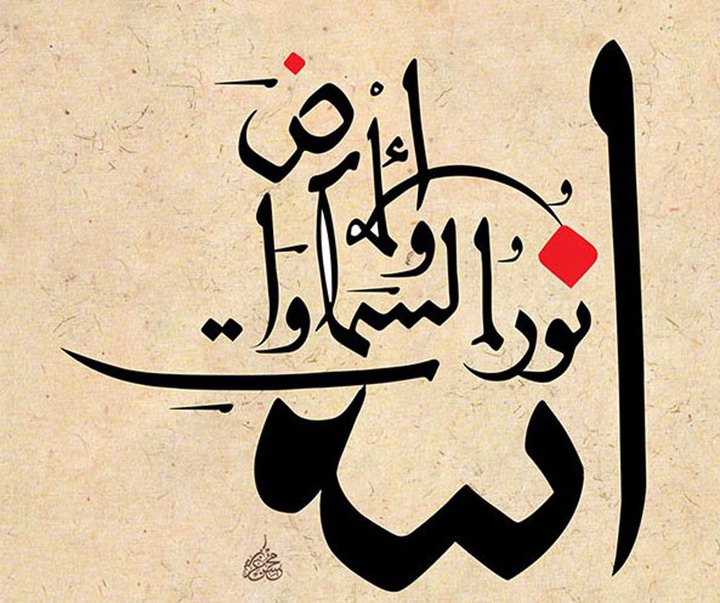 الله
نور السماوات
والأرض